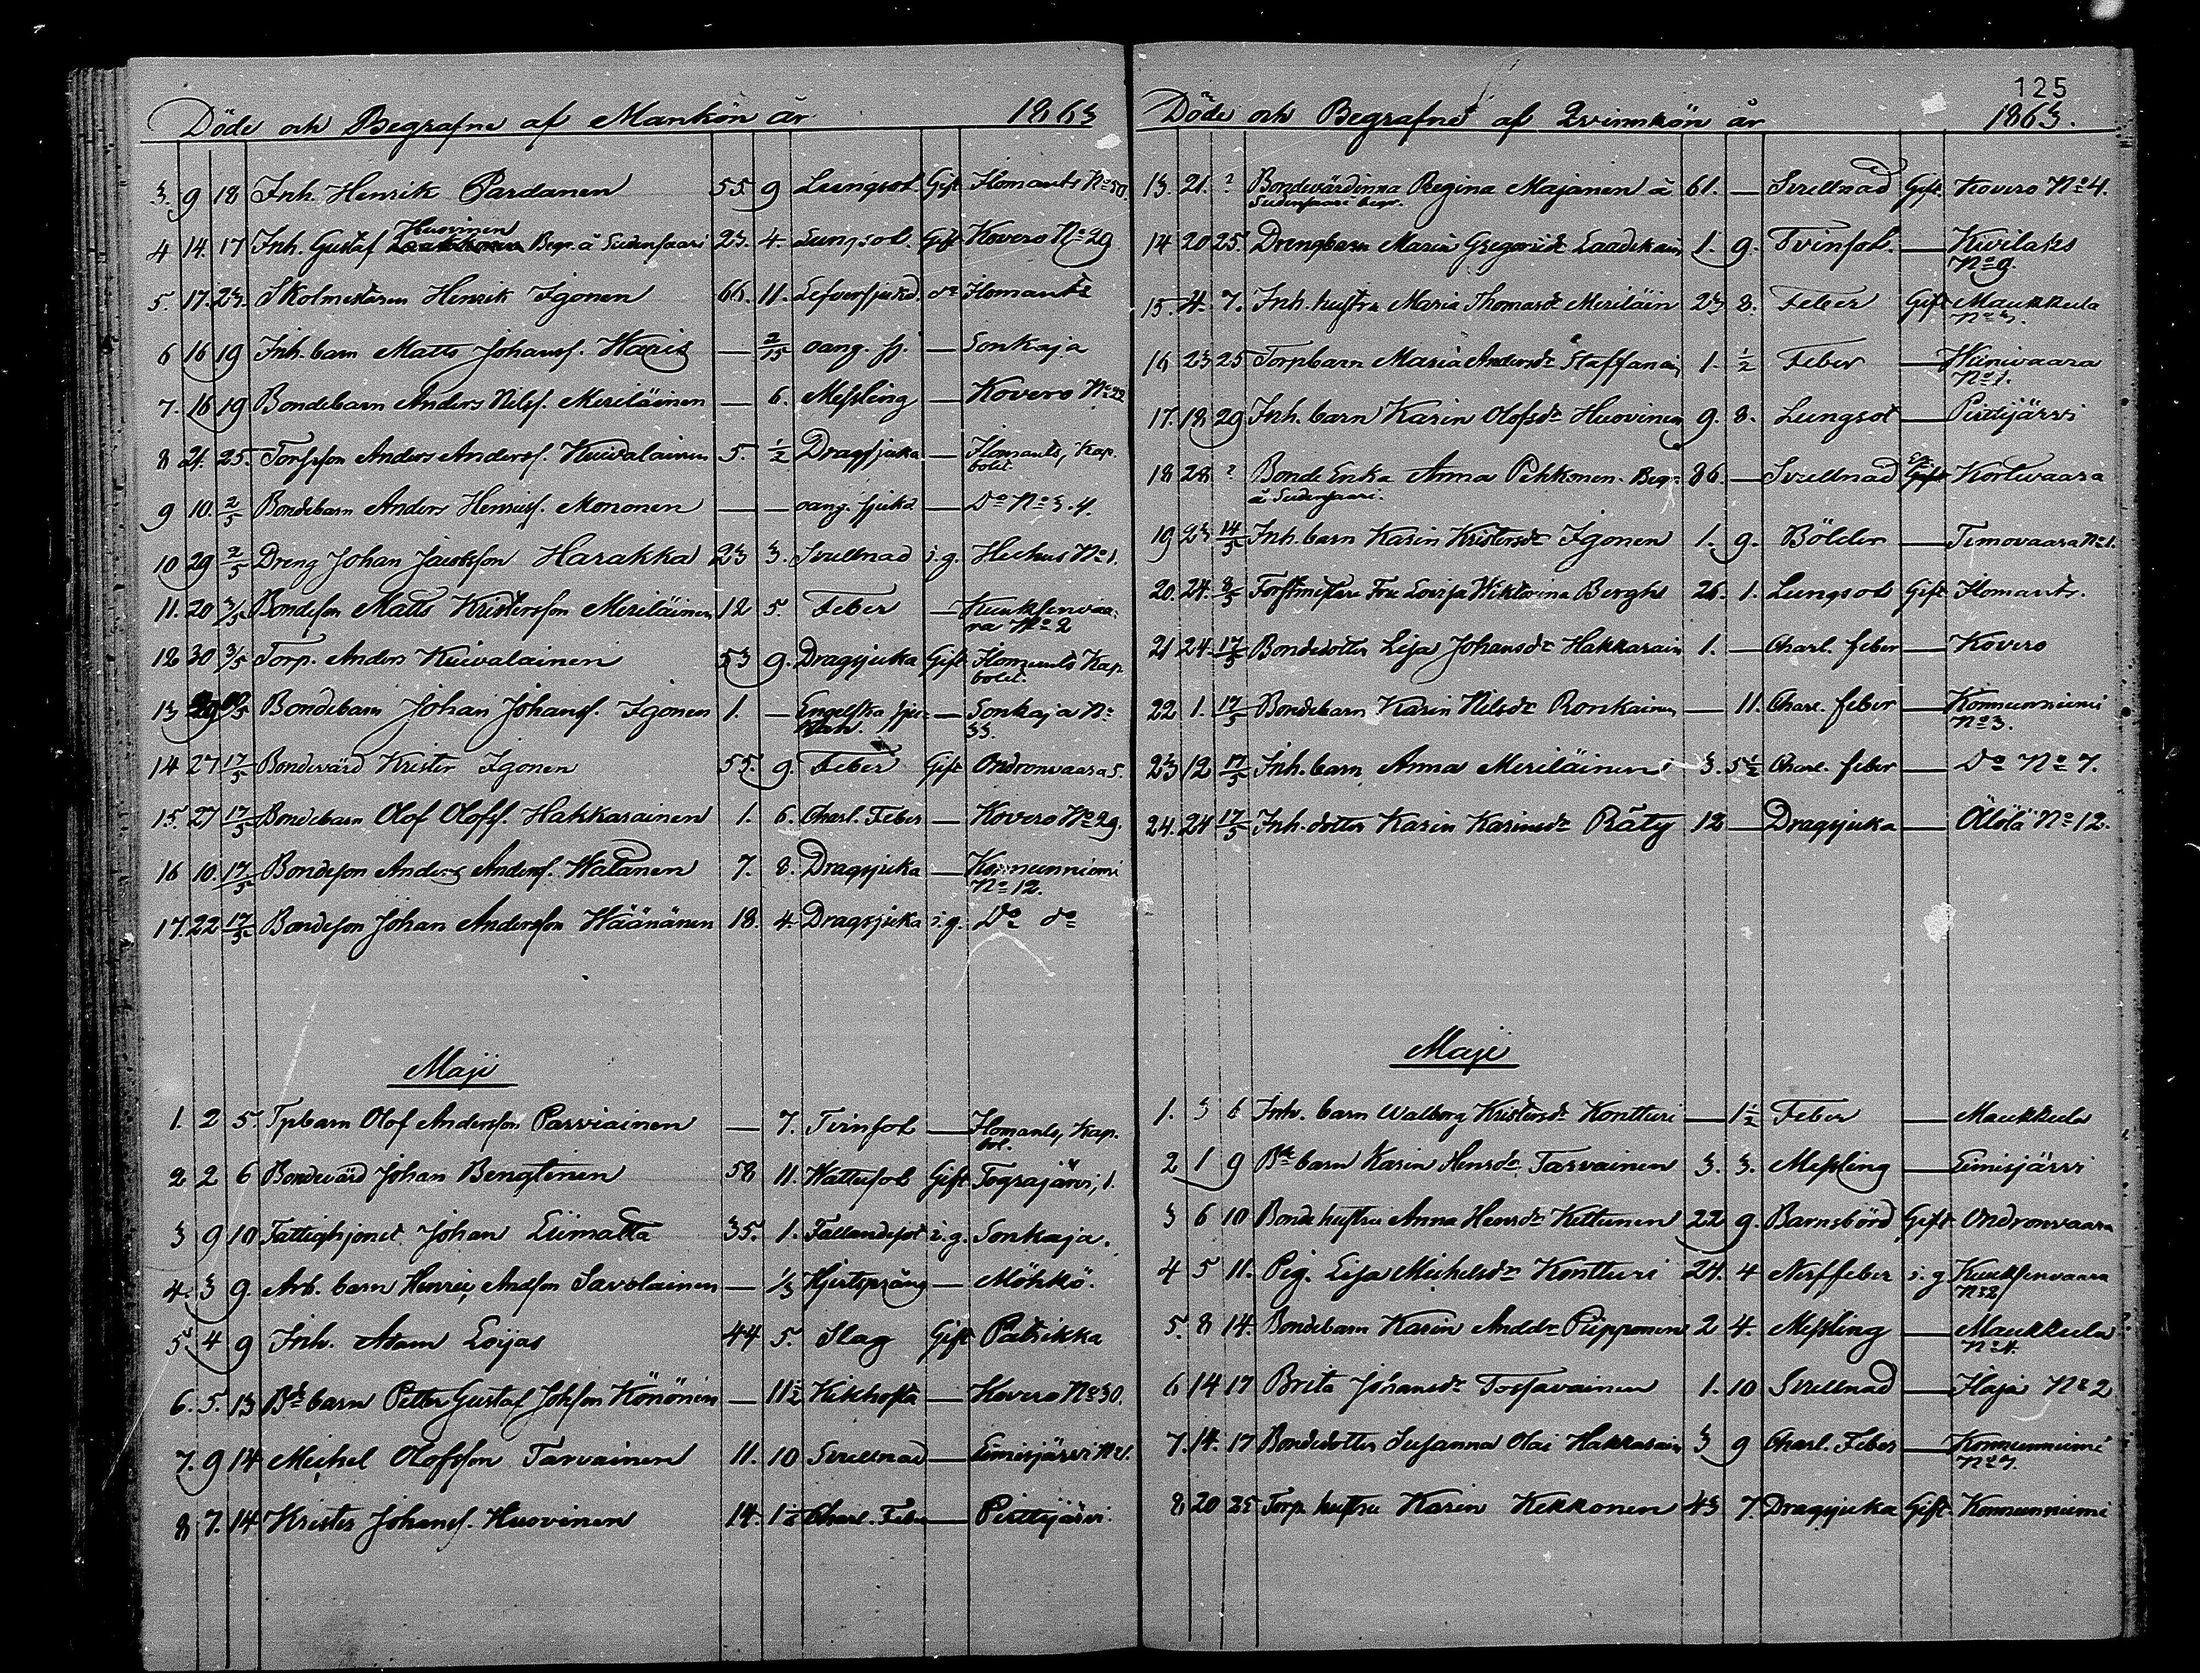 125
Döde och Begrafne af Mankön år 1863
3. 9 18 Inh. Henrik Pardanen 55 9 Lungsot Gift Ilomants No 50.
Huovinen
4 14. 17 Inh. Gustaf Begr. å Sudensaari 23. 4. Lungsot Gift Kovero No 29
5. 17. 23. Skolmästaren Henrik Igonen 66. 11. Lefversjukd. do Ilomants
6 16 19 Inh. barn Matts Johansf. Haris — 2/15 oang. sj. — Sonkaja
7. 16 19 Bondebarn Anders Nilsf. Meriläinen — 6. Messling — Kovero No 22
8 21. 25. Torpson Anders Andersf. Kuivalainen 5. 1/2 Dragsjuka — Ilomants, Kap.
bolet.
9 10. 2/5 Bondebarn Anders Henriksf. Mononen — — oang. sjukd — Do No 3. 4.
10 29 2/5 Dreng Johan Jacobsson Harakka 23 3. Svullnad i.g. Huhus No 1.
11. 20 3/5 Bondeson Matts Kristersson Meriläinen 12 5. Feber — Kuuksenvaa-
ra No 2
12 30 3/5 Torp. Anders Kuivalainen 53 9. Dragsjuka Gift Ilomants Kap.
bolet.
13 Bondebarn Johan Johansf. Igonen 1. — Engelska sju- — Sonkaja No
33.
14 27 17/5 Bondevärd Krister Igonen 55. 9. Feber Gift Ondronvaara 5.
15. 27 17/5 Bondebarn Olof Olofs. Hakkarainen 1. 6. Charl. Feber — Kovero No 29.
16 10. 17/5 Bondeson Anders Andersf. Watanen 7. 8. Dragsjuka — Konnunniemi
No 12.
17. 22 17/5 Bondeson Johan Andersson Wäänänen 18. 4. Dragsjuka i.g. Do do
Maji
1. 2 5. Tpbarn Olof Andersson Parviainen — 7. Tvinsot — Ilomants, Kap.
bol.
2 2 6 Bondevärd Johan Bengtinen 58 11. Wattusot Gift Tograjärvi, 1.
3 9 10 Fattighjonet Johan Liimatta 35. 1. Fallandesot i.g. Sonkaja.
4. 3 9. Arb. barn Henric Andsson Savolainen — 1/3 Hjertsprång — Möhkö.
5. 4 9 Inh. Adam Loijas 44 5. Slag Gift Patrikka
6. 5. 13 Bde barn Petter Gustaf Johsson Könönen — 11 1/2 Kikhosta — Kovero No 30.
7. 9 14 Michel Olofsson Tarvainen 11. 10 Svullnad — Liimisjärvi No 1.
8 7. 14 Krister Johansf. Huovinen 14. 1 1/2 Charl. Feber — Putkijärvi.
Döde och Begrafne af Qvinnkön år 1863.
13. 21. ? Bondevärdinna Regina Majanen å 61. — Svullnad Gift Kovero No 4.
Sudensaari begr.
14 20 25. Drengbarn Maria Gregorsdr Laadikain 1. 9. Tvinsot. — Kuilaks
No 9.
15. 4. 7. Inh. hustru Maria Thomasdr Meriläin 23 8. Feber Gift Maukkula
No 3.
16 23 25 Torpbarn Maria Andersdr Staffanain 1. 1/2 Feber — Hunivaara
No 1.
17. 18 29 Inh. barn Karin Olofsdr Huovinen 9. 8. Lungsot — Putkijärvi
18 28 ? Bonde Enka Anna Pekkonen. Begr. 86. — Svullnad Kortevaara
å Sudensaari.
19 23 14/5 Inh. barn Karin Kristersdr Igonen 1. 9. Bölder — Timovaara No 1.
20. 24. 8/5 Forstmestare Fru Lovisa Wiktorina Bergh 26. 1. Lungsot Gift Ilomants.
21 24. 17/5 Bondedotter Lisa Johansdr Hakkarain 1. — Charl. feber — Kovero
22 1. 17/5 Bondebarn Karin Nilsdr Ronkainen — 11. Charl. feber — Konnunniemi
No 3.
23 12 17/5 Inh. barn Anna Meriläinen 3. 5 1/2 Charl. feber — Do No 7.
24. 24 17/5 Inh. dotter Karin Karinsdr Räty 12 — Dragsjuka — Ölölä No 12.
Maji
1. 3 6 Inh. barn Walborg Kristersdr Kontturi — 1 1/2 Feber — Maukkula
2 1 9 Bde barn Karin Henrsdr Tarvainen 3. 3. Messling — Liimisjärvi
3 6 10 Bonde hustru Anna Henrsdr Kettunen 22 9. Barnsbörd Gift Ondronvaara
4 5 11. Pig. Lisa Michelsdr Kontturi 24. 4 Nerffeber i.g. Kuuksenvaara
No 2
5. 8 14. Bondebarn Karin Andsdr Piipponen 2 4. Messling — Maukkula
No 4.
6 14 17 Brita Johansdr Tossavainen 1. 10 Svullnad — Ilaja No 2
7. 14. 17 Bondedotter Susanna Olai Hakkarain 3 9 Charl. Feber — Konnunniemi
No 7.
8 20 25 Torp. hustru Karin Kekkonen 43 7. Dragsjuka Gift. Konnunniemi